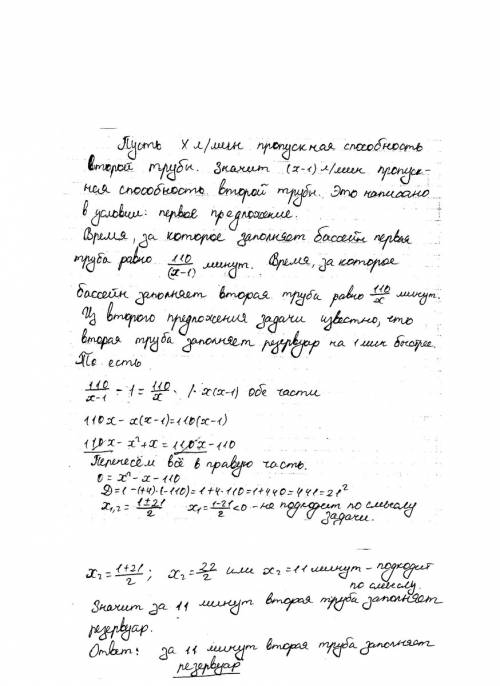 Пусть x л/мин пропускная способность
второй трубы. Значит (x-1) л/мин пропуск-
ная способность второй трубы. Это написано
в условии: первое предложение.
Время, за которое заполняет бассейн первая
труба равно 110/(x-1) минут. Время, за которое
бассейн заполняет вторая труба равно 110/x минут.
Из второго предложения задачи известно, что
вторая труба заполняет резервуар на 1 мин быстрее.
То есть
110/x-1 - 1 = 110/x · /· x(x-1) обе части
110x - x(x-1)=110(x-1)
110x - x²+x = 110x - 110
Перенесём всё в правую часть.
0 = x² - x - 110
D = 1 - (+4)·(-110)=1+4·110=1+440=441=21²
x₁,₂ = 1±21/2 x₁= 1-21/2 <0 - не подходит по смыслу
задачи.
x₂ = 1+21/2 ; x₂ = 22/2 или x₂ = 11 минут - подходит
по смыслу.
Значит за 11 минут вторая труба заполняет
резервуар.
Ответ: за 11 минут вторая труба заполняет
резервуар